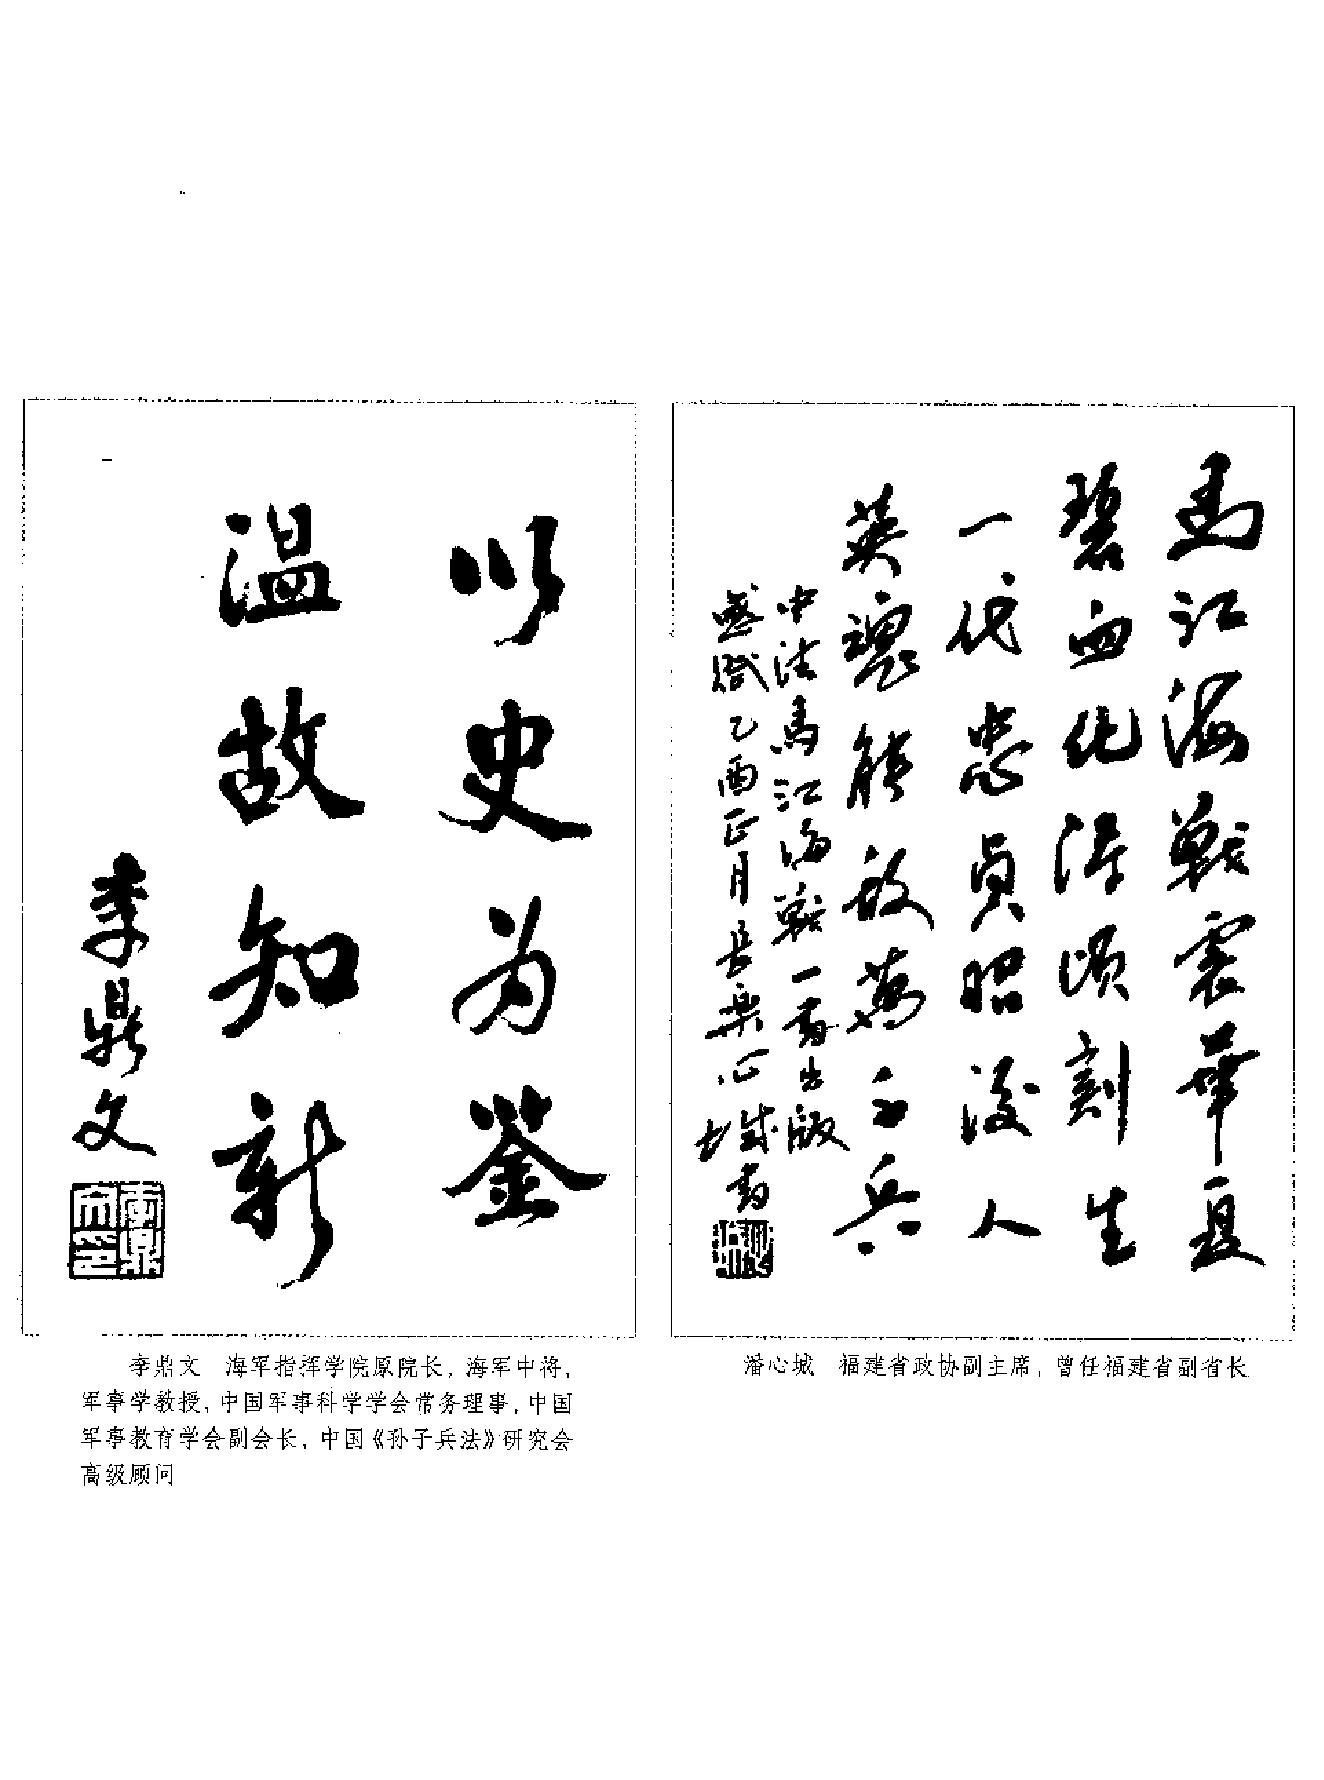 以史为鉴
温故知新
李鼎文
李鼎文印
李鼎文 海军指挥学院原院长，海军中将，
军事学教授，中国军事科学学会常务理事，中国
军事教育学会副会长，中国《孙子兵法》研究会
高级顾问
馬江海戰震華夏
碧血化濤頃刻生
一代忠貞昭後人
英魂能敌萬千兵
中法馬江海戰一書出版
感賦乙酉正月長樂心城書
潘心城 福建省政协副主席，曾任福建省副省长